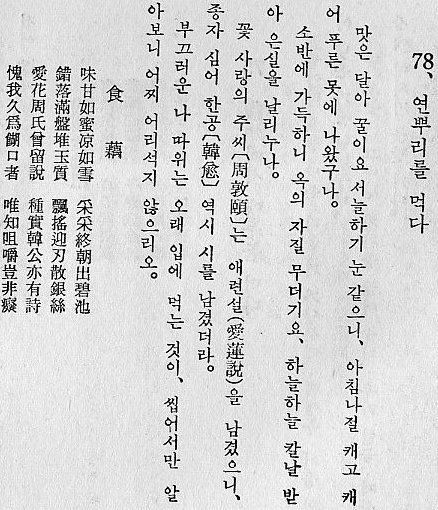 78、 연뿌리를 먹다
맛은 달아 꿀이요 서늘하기 눈 같으니、 아침나절 캐고 캐
어 푸른 못에 나왔구나。
소반에 가득하니 옥의 자질 무더기요、 하늘하늘 칼날 받
아 은실을 날리누나。
꽃 사랑의 주씨〔周敦頤〕는 애련설(愛蓮說)을 남겼으니、
종자 심어 한공〔韓愈〕 역시 시를 남겼더라。
부끄러운 나 따위는 오래 입에 먹는 것이、 씹어서만 알
아보니 어찌 어리석지 않으리오。
食藕
味甘如蜜凉如雪 采采終朝出碧池
錯落滿盤堆玉質 飄搖迎刃散銀絲
愛花周氏曾留說 種實韓公亦有詩
愧我久爲餬口者 唯知咀嚼豈非癡